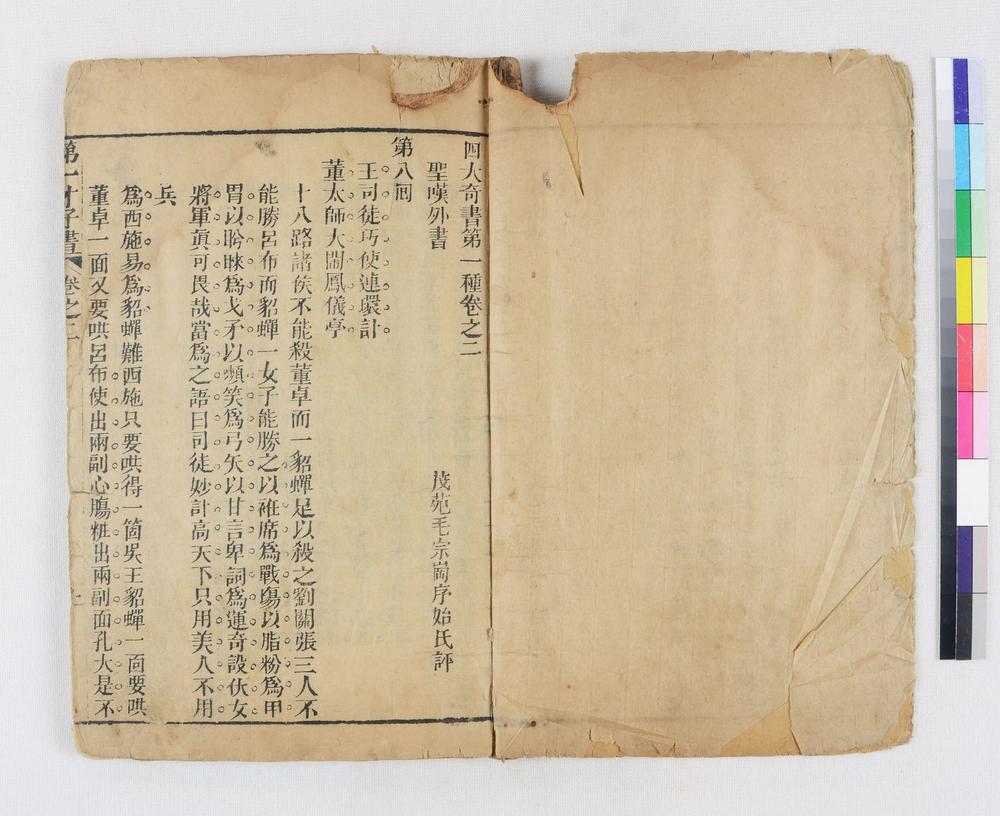 四大奇書第一種卷之二
聖嘆外書
茂苑毛宗崗序始氏評
第八回
王司徒巧使連環計
董太師大鬧鳳儀亭
十八路諸侯不能殺董卓而一貂蟬足以殺之劉關張三人不
能勝呂布而貂蟬一女子能勝之以袵席爲戰塲以脂粉爲甲
冑以盻睞爲戈矛以嚬笑爲弓矢以甘言卑詞爲運奇設伏女
將軍眞可畏哉當爲之語曰司徒妙計高天下只用美人不用
兵
爲西施易爲貂蟬難西施只要哄得一箇吳王貂蟬一面要哄
董卓一面又要哄呂布使出兩副心膓粧出兩副面孔大是不
第一才子書 卷之二